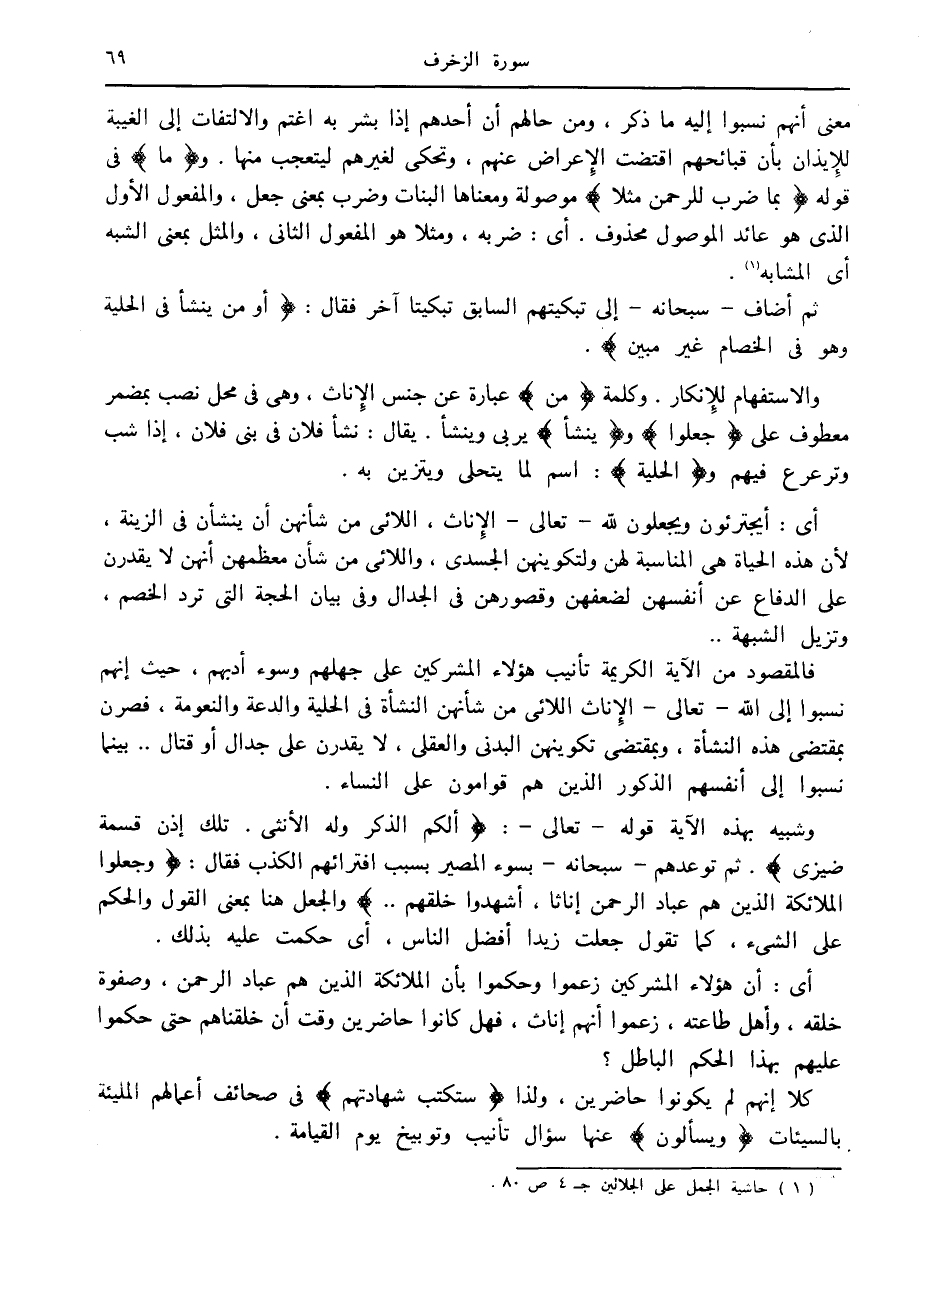 سورة الزخرف ٦٩
معنى أنهم نسبوا إليه ما ذكر ، ومن حالهم أن أحدهم إذا بشر به اغتم والالتفات إلى الغيبة
للإيذان بأن قبائحهم اقتضت الإعراض عنهم ، وتحكى لغيرهم ليتعجب منها . و﴿ ما ﴾ فى
قوله ﴿ بما ضرب للرحمن مثلا ﴾ موصولة ومعناها البنات وضرب بمعنى جعل ، والمفعول الأول
الذى هو عائد الموصول محذوف . أى : ضربه ، ومثلا هو المفعول الثانى ، والمثل بمعنى الشبه
أى المشابه(١) .
ثم أضاف – سبحانه – إلى تبكيتهم السابق تبكيتا آخر فقال : ﴿ أو من ينشأ فى الحلية
وهو فى الخصام غير مبين ﴾ .
والاستفهام للإنكار . وكلمة ﴿ من ﴾ عبارة عن جنس الإناث ، وهى فى محل نصب بمضمر
معطوف على ﴿ جعلوا ﴾ و﴿ ينشأ ﴾ يربى وينشأ . يقال : نشأ فلان فى بنى فلان ، إذا شب
وترعرع فيهم و﴿ الحلية ﴾ : اسم لما يتحلى ويتزين به .
أى : أيجترئون ويجعلون لله – تعالى – الإناث ، اللائى من شأنهن أن ينشأن فى الزينة ،
لأن هذه الحياة هى المناسبة لهن ولتكوينهن الجسدى ، واللائى من شأن معظمهن أنهن لا يقدرن
على الدفاع عن أنفسهن لضعفهن وقصورهن فى الجدال وفى بيان الحجة التى ترد الخصم ،
وتزيل الشبهة ..
فالمقصود من الآية الكريمة تأنيب هؤلاء المشركين على جهلهم وسوء أدبهم ، حيث إنهم
نسبوا إلى الله – تعالى – الإناث اللائى من شأنهن النشأة فى الحلية والدعة والنعومة ، فصرن
بمقتضى هذه النشأة ، وبمقتضى تكوينهن البدنى والعقلى ، لا يقدرن على جدال أو قتال .. بينما
نسبوا إلى أنفسهم الذكور الذين هم قوامون على النساء .
وشبيه بهذه الآية قوله – تعالى – : ﴿ ألكم الذكر وله الأنثى . تلك إذن قسمة
ضيزى ﴾ . ثم توعدهم – سبحانه – بسوء المصير بسبب افترائهم الكذب فقال : ﴿ وجعلوا
الملائكة الذين هم عباد الرحمن إناثا ، أشهدوا خلقهم .. ﴾ والجعل هنا بمعنى القول والحكم
على الشىء ، كما تقول جعلت زيدا أفضل الناس ، أى حكمت عليه بذلك .
أى : أن هؤلاء المشركين زعموا وحكموا بأن الملائكة الذين هم عباد الرحمن ، وصفوة
خلقه ، وأهل طاعته ، زعموا أنهم إناث ، فهل كانوا حاضرين وقت أن خلقناهم حتى حكموا
عليهم بهذا الحكم الباطل ؟
كلا إنهم لم يكونوا حاضرين ، ولذا ﴿ ستكتب شهادتهم ﴾ فى صحائف أعمالهم المليئة
بالسيئات ﴿ ويسألون ﴾ عنها سؤال تأنيب وتوبيخ يوم القيامة .
( ١ ) حاشية الجمل على الجلالين جـ ٤ ص ٨٠ .